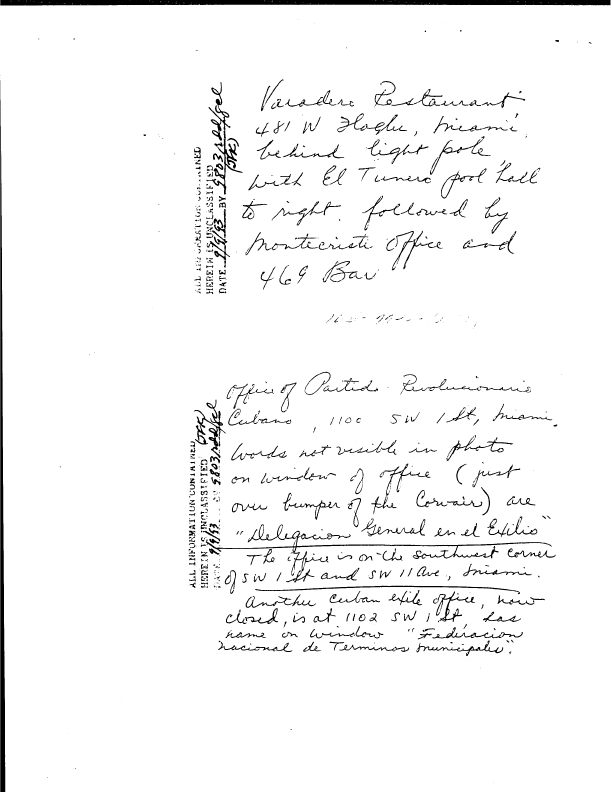 ALL INFORMATION CONTAINED
HEREIN IS UNCLASSIFIED
DATE 9/9/93 BY 9803/rdd/gcl
(JFK)
Varadero Restaurant
481 W Flagler, Miami,
behind light pole,
with El Tunero pool hall
to right, followed by
Montecristi Office and
469 Bar
Office of Partido Revolucionario
Cubano, 1100 SW 1 St, Miami.
Words not visible in photo
on window of office (just
over bumper of the Corvair) are
"Delegacion General en el Exilio"
The office is on the southwest corner
of SW 1 St and SW 11 Ave, Miami.
Another Cuban exile office, now
closed, is at 1102 SW 1 St, has
name on window "Federacion
Nacional de Terminos Municipales".
ALL INFORMATION CONTAINED
HEREIN IS UNCLASSIFIED (JFK)
DATE 9/9/93 BY 9803/rdd/gcl